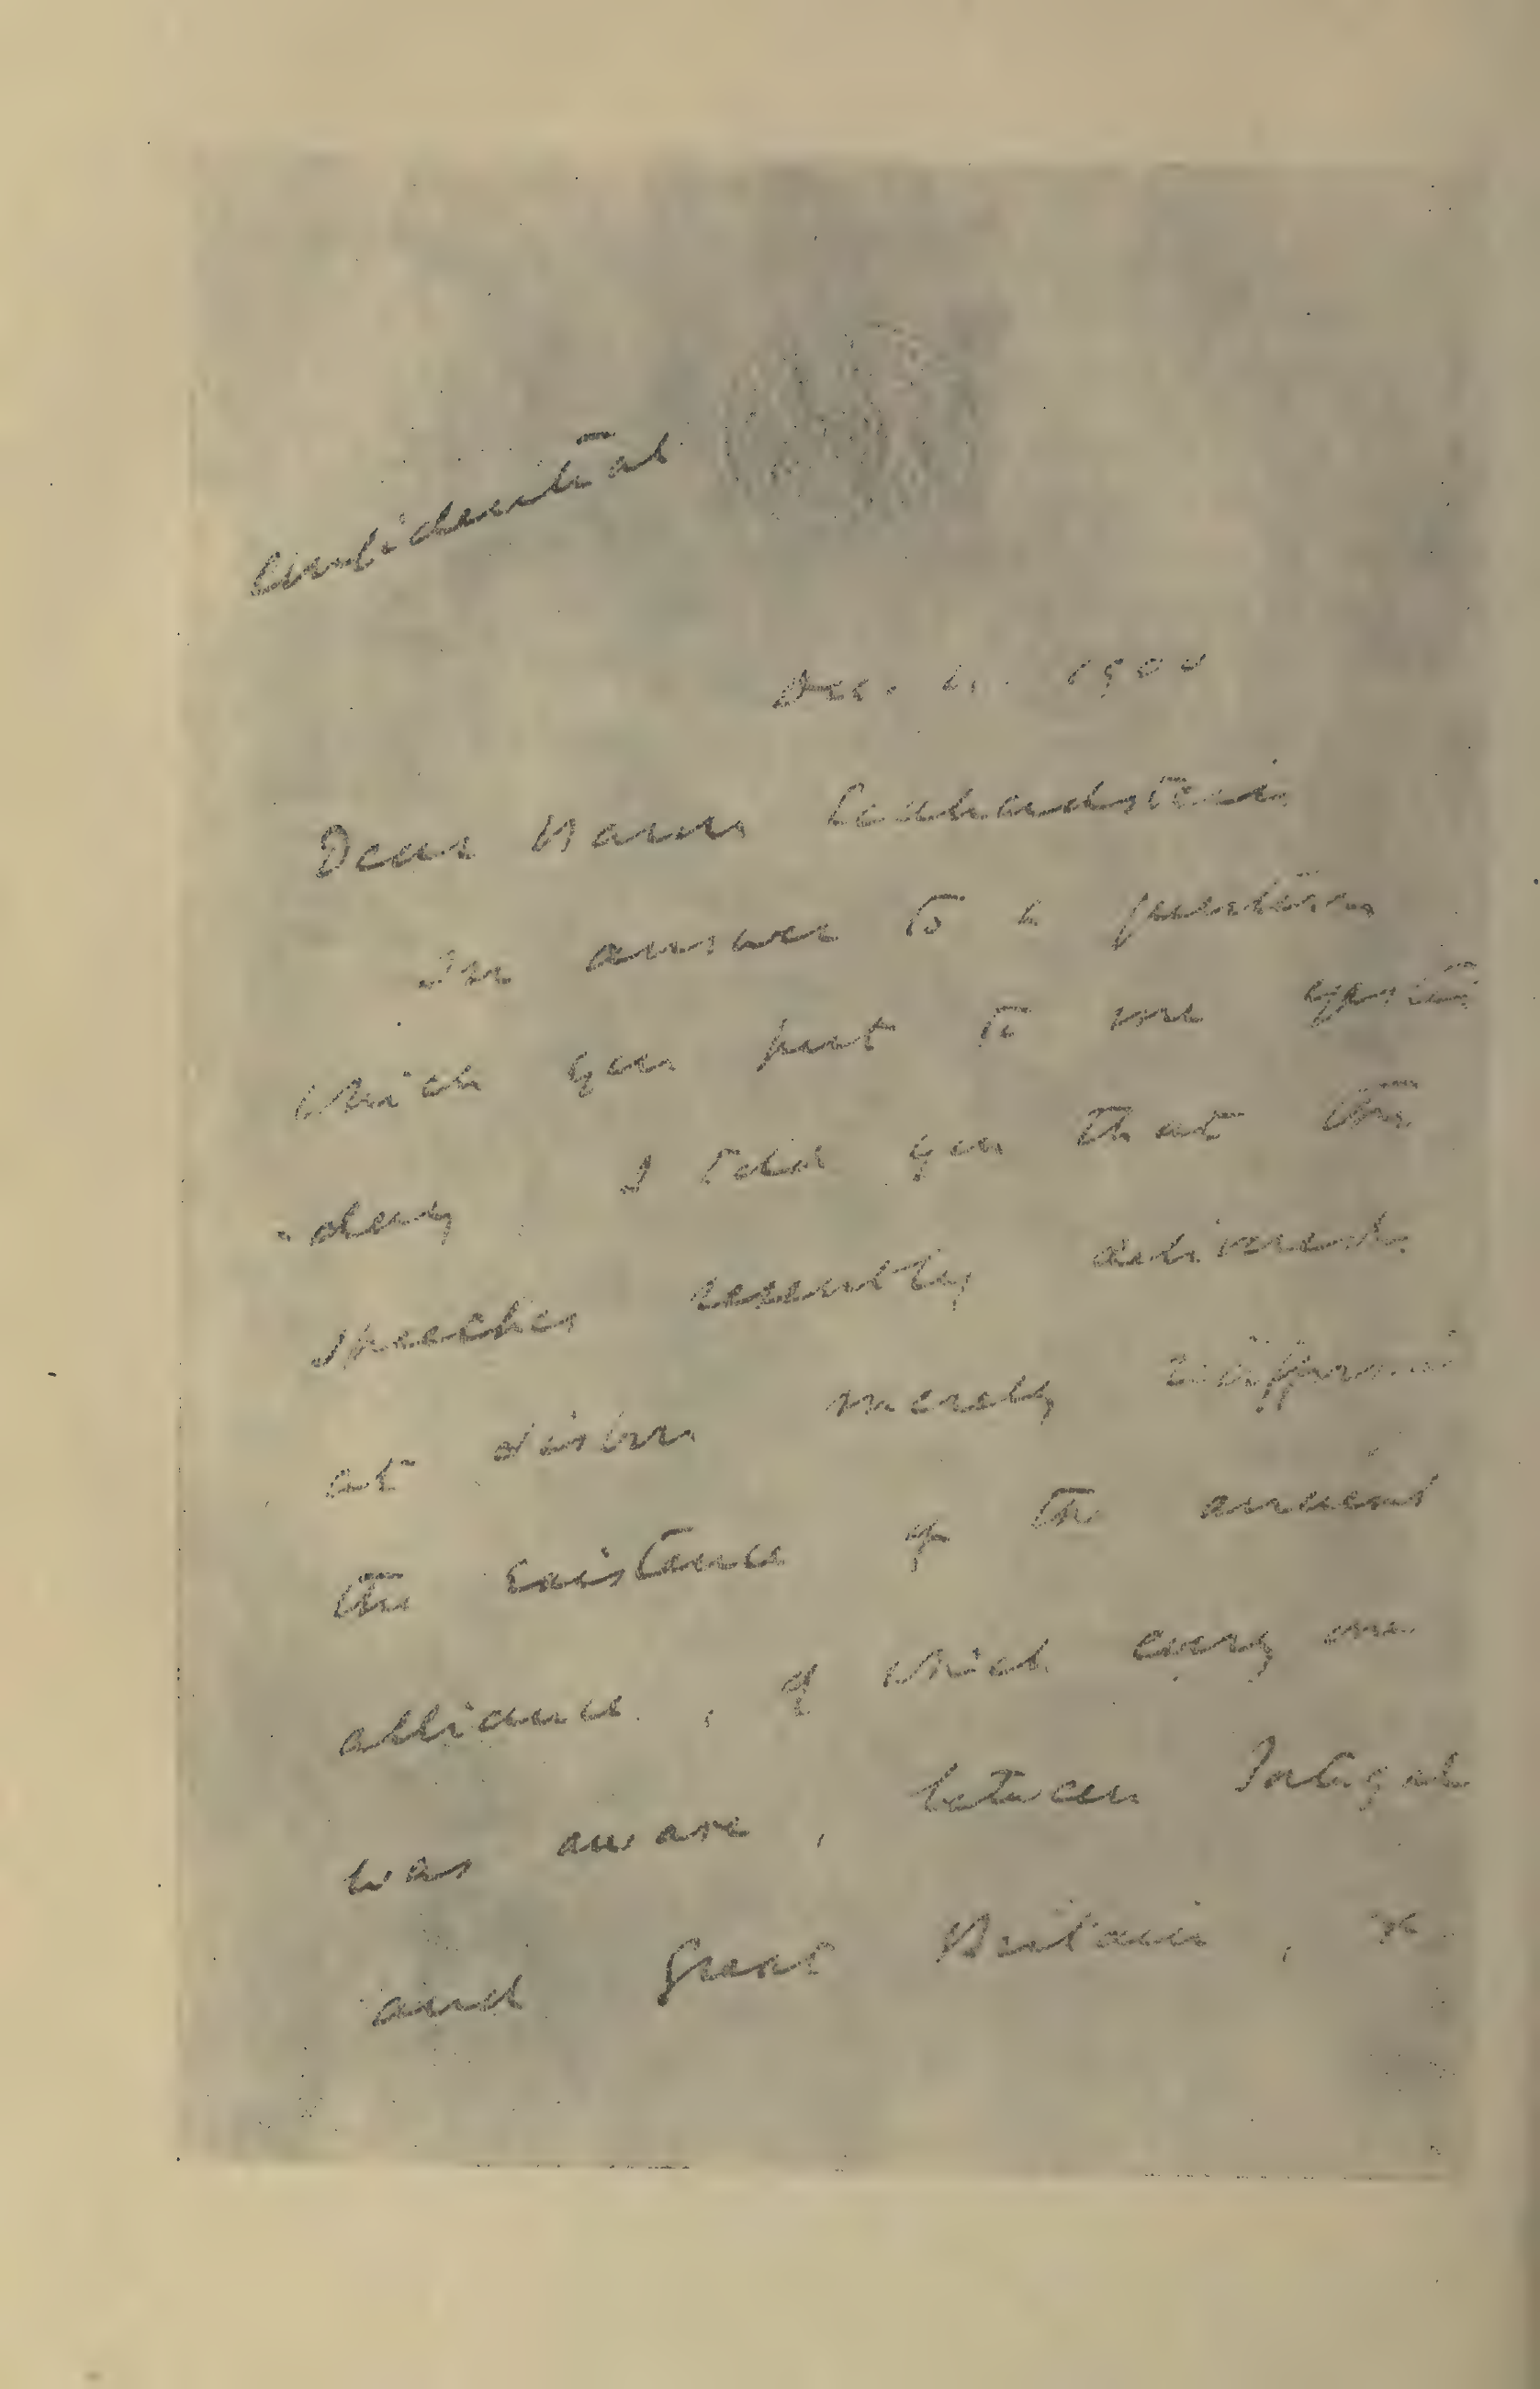 Confidential
Dec. 1900
Dear Baron Eckhardstein
In answer to a question
which you put to me
I told you that the
speeches recently delivered
at Lisbon merely
the existence of the ancient
alliance, of which every one
was aware, between Portugal
and Great Britain,